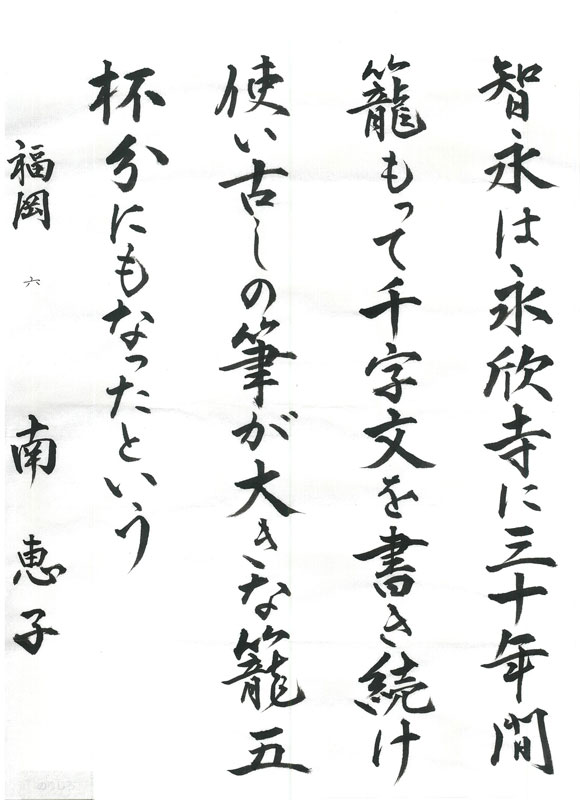 智永は永欣寺に三十年間
籠もって千字文を書き続け
使い古しの筆が大きな籠五
杯分にもなったという
福岡 六 南 恵子